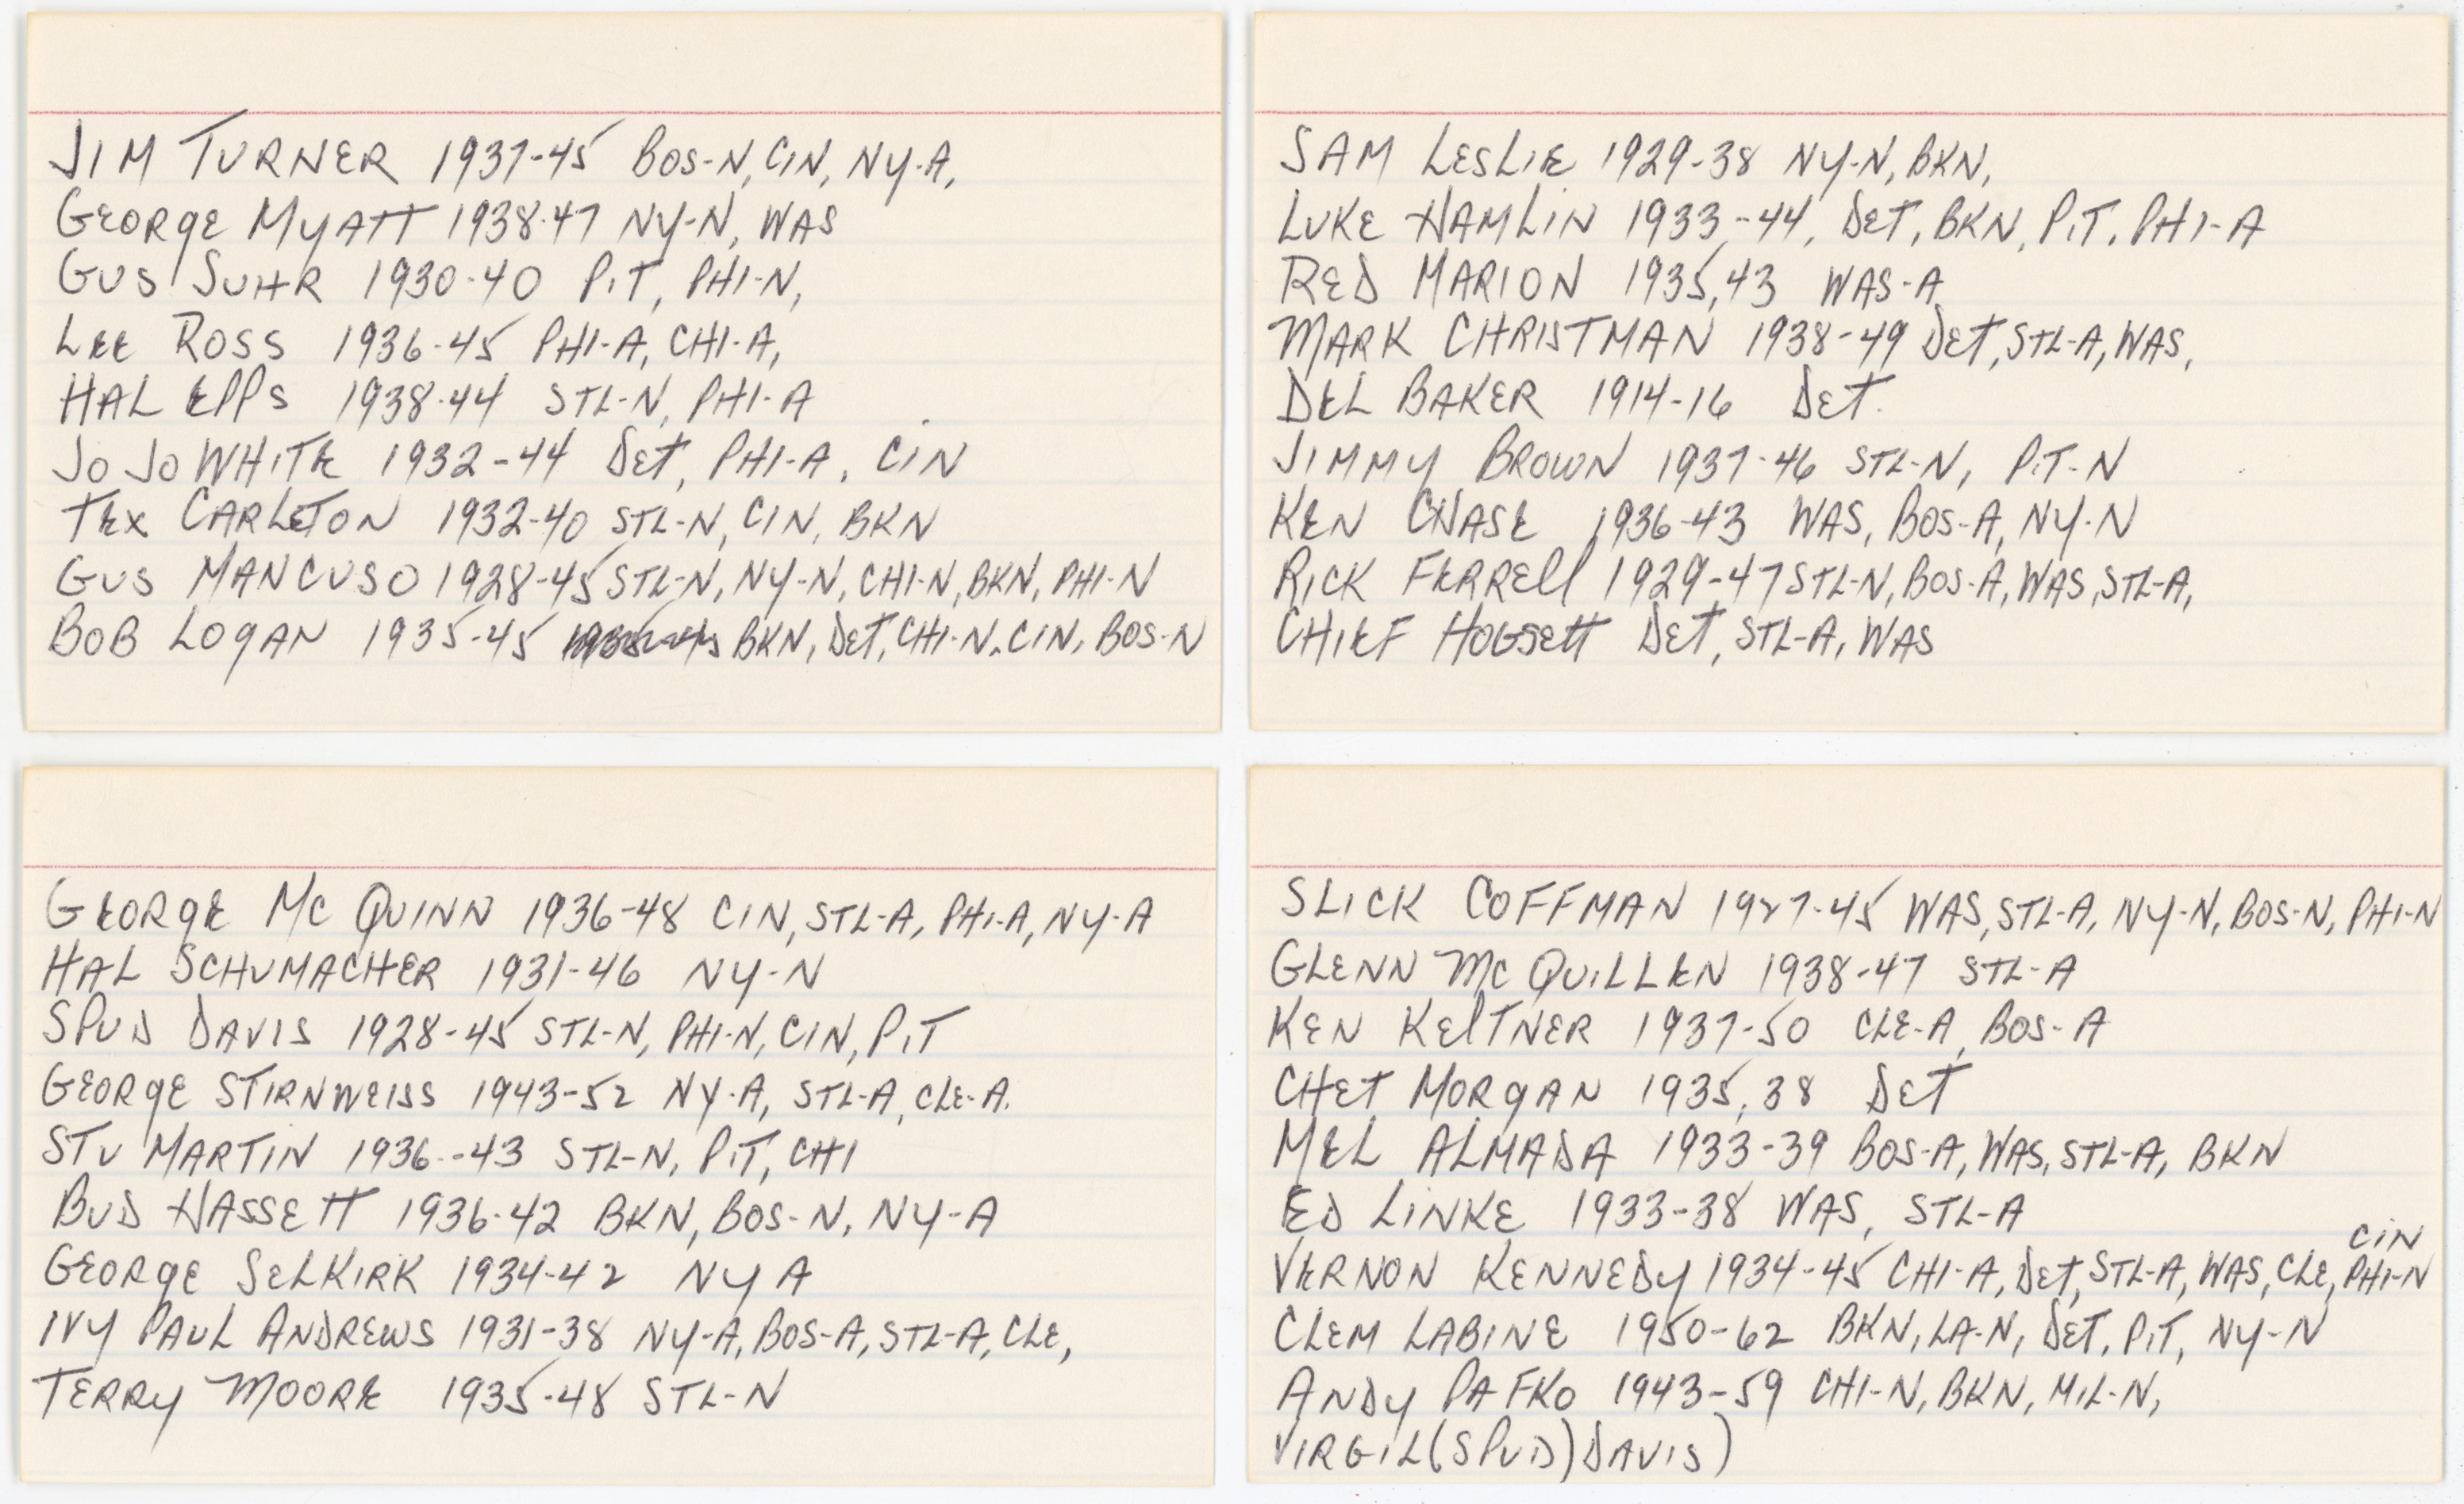 JIM TURNER 1937-45 BOS-N, CIN, NY-A,
GEORGE MYATT 1938-47 NY-N, WAS
GUS SUHR 1930-40 PIT, PHI-N,
LEE ROSS 1936-45 PHI-A, CHI-A,
HAL EPPS 1938-44 STL-N, PHI-A
JO JO WHITE 1932-44 DET, PHI-A, CIN
TEX CARLETON 1932-40 STL-N, CIN, BKN
GUS MANCUSO 1928-45 STL-N, NY-N, CHI-N, BKN, PHI-N
BOB LOGAN 1935-45 BKN, DET, CHI-N, CIN, BOS-N
SAM LESLIE 1929-38 NY-N, BKN,
LUKE HAMLIN 1933-44, DET, BKN, PIT, PHI-A
RED MARION 1935,43 WAS-A
MARK CHRISTMAN 1938-49 DET, STL-A, WAS,
DEL BAKER 1914-16 DET.
JIMMY BROWN 1937-46 STL-N, PIT-N
KEN CHASE 1936-43 WAS, BOS-A, NY-N
RICK FERRELL 1929-47 STL-N, BOS-A, WAS, STL-A,
CHIEF HOGSETT DET, STL-A, WAS
GEORGE MC QUINN 1936-48 CIN, STL-A, PHI-A, NY-A
HAL SCHUMACHER 1931-46 NY-N
SPUD DAVIS 1928-45 STL-N, PHI-N, CIN, PIT
GEORGE STIRNWEISS 1943-52 NY-A, STL-A, CLE-A.
STU MARTIN 1936-43 STL-N, PIT, CHI
BUD HASSETT 1936-42 BKN, BOS-N, NY-A
GEORGE SELKIRK 1934-42 NY A
IVY PAUL ANDREWS 1931-38 NY-A, BOS-A, STL-A, CLE,
TERRY MOORE 1935-48 STL-N
SLICK COFFMAN 1927-45 WAS, STL-A, NY-N, BOS-N, PHI-N
GLENN MC QUILLEN 1938-47 STL-A
KEN KELTNER 1937-50 CLE-A, BOS-A
CHET MORGAN 1935, 38 DET
MEL ALMADA 1933-39 BOS-A, WAS, STL-A, BKN
ED LINKE 1933-38 WAS, STL-A
CIN
VERNON KENNEDY 1934-45 CHI-A, DET, STL-A, WAS, CLE, PHI-N
CLEM LABINE 1950-62 BKN, LA-N, DET, PIT, NY-N
ANDY PAFKO 1943-59 CHI-N, BKN, MIL-N,
VIRGIL (SPUD) DAVIS)